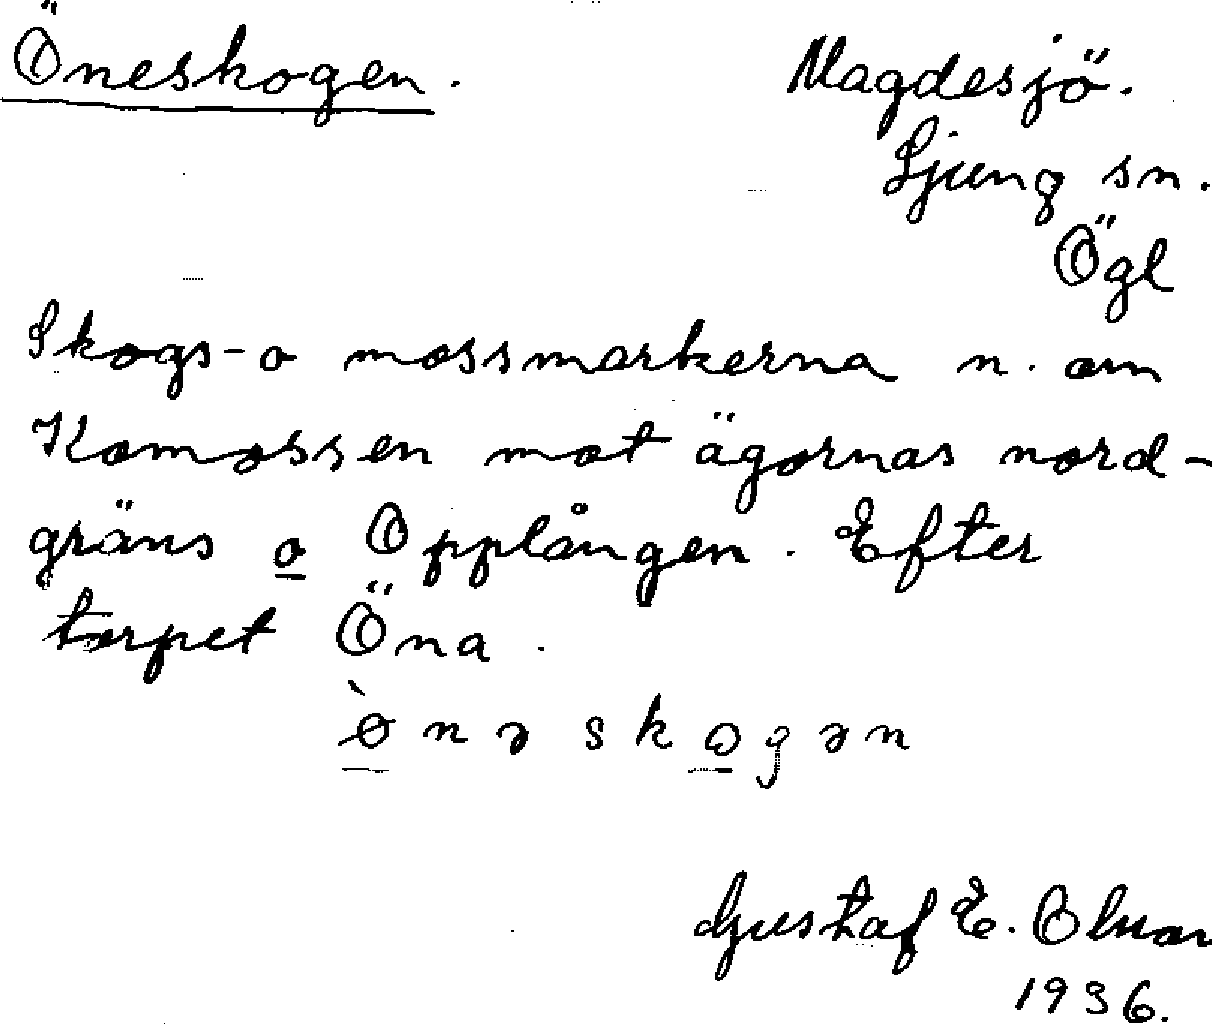 Öneskogen. Magdesjö.
Ljung sn.
Ögl
Skogs- o mossmarkerna n. om
Komossen mot ägornas nord-
gräns o Opplången. Efter
torpet Öna.
ø̀nəskogən
Gustaf E.
1936.